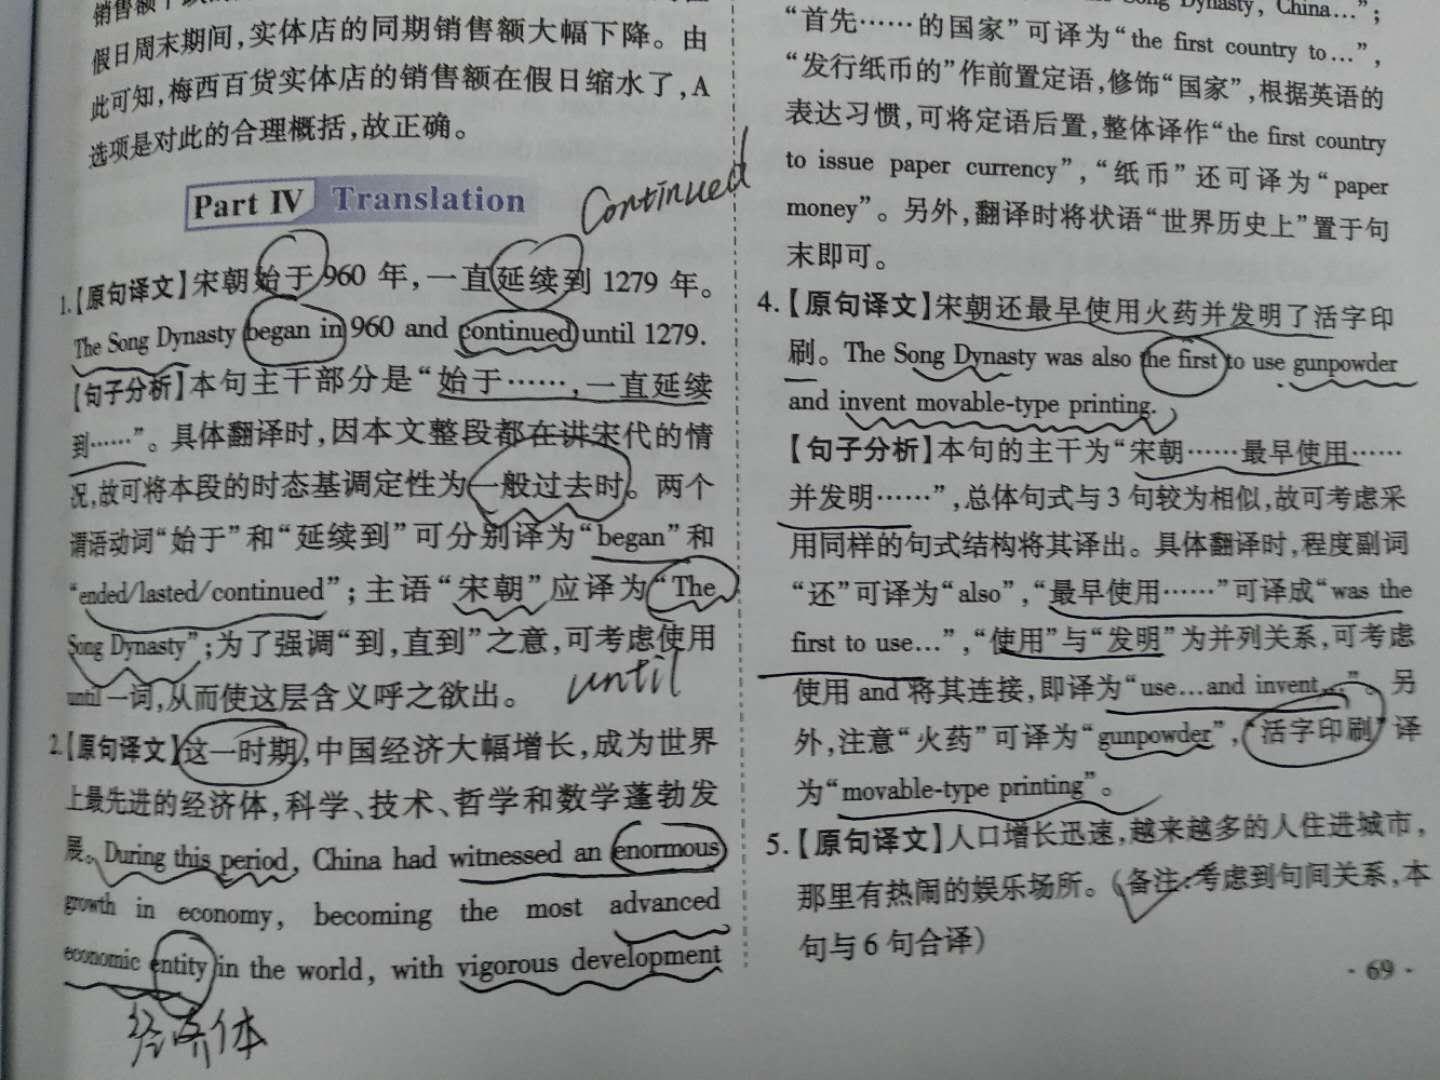 销售额
假日周末期间,实体店的同期销售额大幅下降。由
此可知,梅西百货实体店的销售额在假日缩水了,A
选项是对此的合理概括,故正确。
Part IV Translation
Continued
1.【原句译文】宋朝始于960年,一直延续到1279年。
The Song Dynasty began in 960 and continued until 1279.
【句子分析】本句主干部分是“始于……,一直延续
到……”。具体翻译时,因本文整段都在讲宋代的情
况,故可将本段的时态基调定性为一般过去时。两个
谓语动词“始于”和“延续到”可分别译为“began”和
“ended/lasted/continued”;主语“宋朝”应译为“The
Song Dynasty”;为了强调“到,直到”之意,可考虑使用
until一词,从而使这层含义呼之欲出。
until
2.【原句译文】这一时期,中国经济大幅增长,成为世界
上最先进的经济体,科学、技术、哲学和数学蓬勃发
展。During this period, China had witnessed an enormous
growth in economy, becoming the most advanced
economic entity in the world, with vigorous development
经济体
Song Dynasty, China…”;
“首先……的国家”可译为“the first country to…”,
“发行纸币的”作前置定语,修饰“国家”,根据英语的
表达习惯,可将定语后置,整体译作“the first country
to issue paper currency”,“纸币”还可译为“paper
money”。另外,翻译时将状语“世界历史上”置于句
末即可。
4.【原句译文】宋朝还最早使用火药并发明了活字印
刷。The Song Dynasty was also the first to use gunpowder
and invent movable-type printing.
【句子分析】本句的主干为“宋朝……最早使用……
并发明……”,总体句式与3句较为相似,故可考虑采
用同样的句式结构将其译出。具体翻译时,程度副词
“还”可译为“also”,“最早使用……”可译成“was the
first to use…”,“使用”与“发明”为并列关系,可考虑
使用and将其连接,即译为“use…and invent…”。另
外,注意“火药”可译为“gunpowder”,“活字印刷”译
为“movable-type printing”。
5.【原句译文】人口增长迅速,越来越多的人住进城市,
那里有热闹的娱乐场所。(备注:考虑到句间关系,本
句与6句合译)
·69·